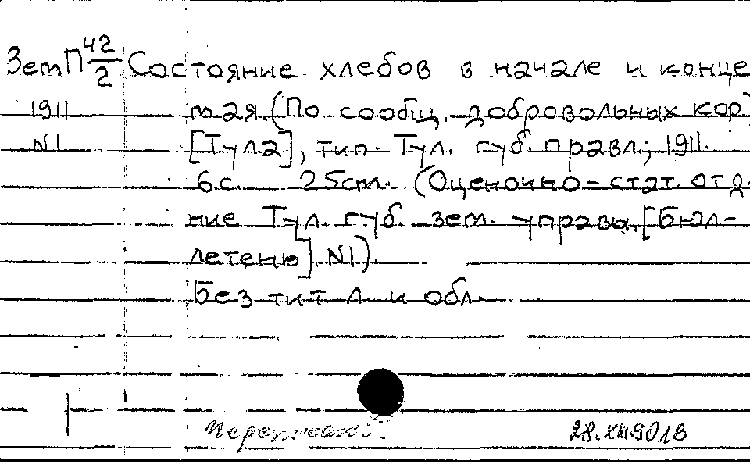 ЗемП 42/2 Состояние хлебов в начале и конце
1911 мая. (По сообщ. добровольных кор)
N1 [Тула], тип. Тул. губ. правл., 1911.
6с. 25cm. (Оценочно-стат. отд-
ние Тул. губ. зем. управы. [Бюл-
летень] N1).
Без тит л и обл.
28.XII